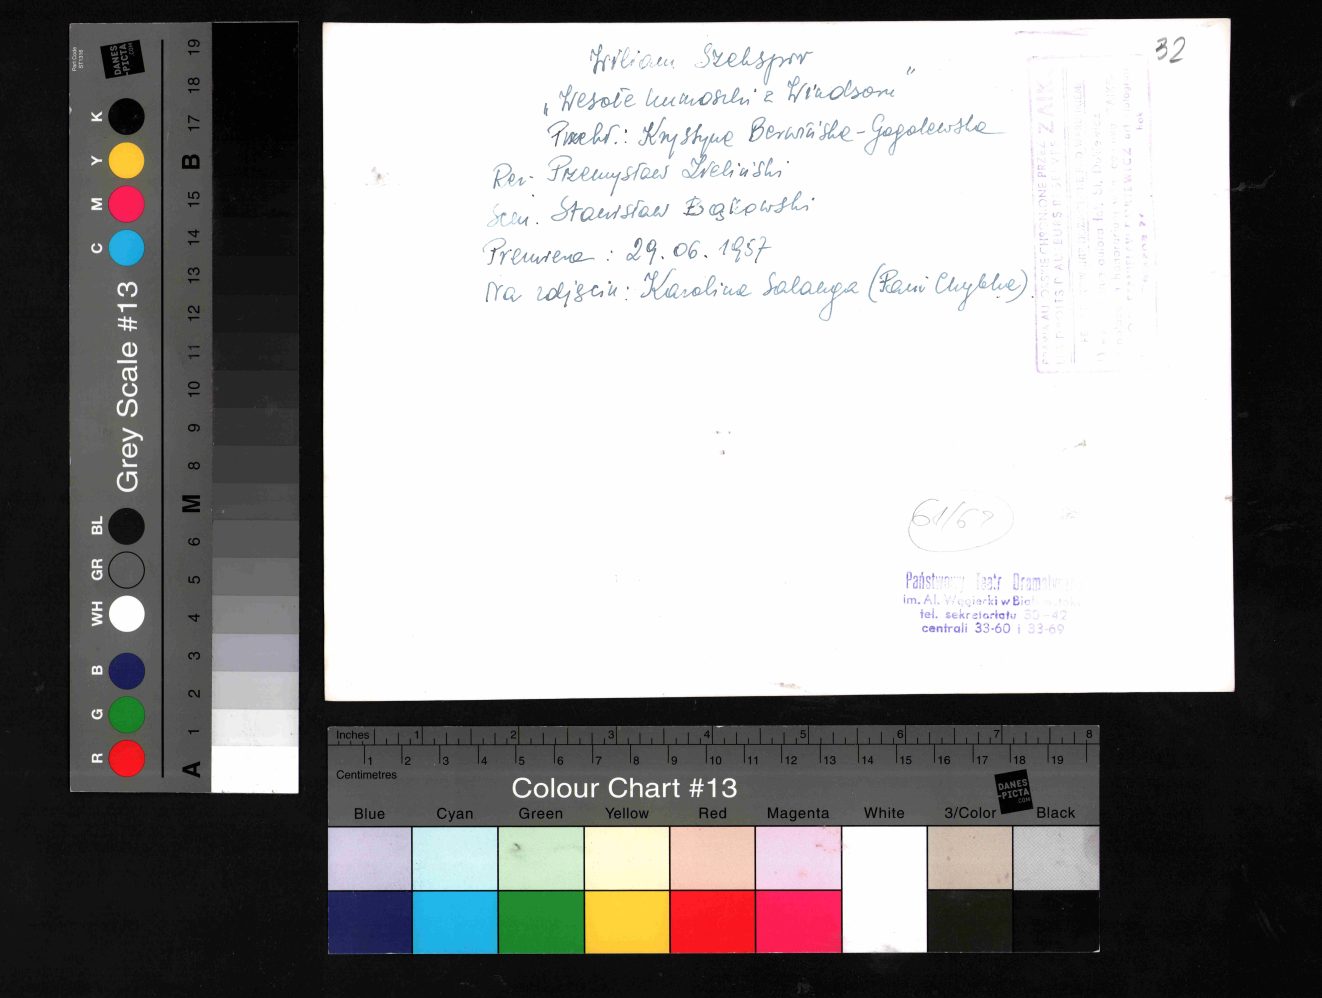 32
Wiliam Szekspir
„Wesołe kumoszki z Windsoru”
Przekł.: Krystyna Berwińska-Gogolewska
Reż. Przemysław Zieliński
Scen. Stanisław Bąkowski
Premiera : 29.06.1957
Na zdjęciu: Karolina Salanga (Pani Chybka)
61/6
Państwowy Teatr
im. Al. Węgierki w
tel. sekretariatu
centrali 33-60 i 33-69
Grey Scale #13
DANES
-PICTA
.COM
K
Y
M
C
BL
GR
WH
B
G
R
A 1 2 3 4 5 6 M 8 9 10 11 12 13 14 15 B 17 18 19
Inches 1 2 3 4 5 6 7 8
Centimetres 1 2 3 4 5 6 7 8 9 10 11 12 13 14 15 16 17 18 19
Colour Chart #13
DANES
-PICTA
.COM
Blue Cyan Green Yellow Red Magenta White 3/Color Black